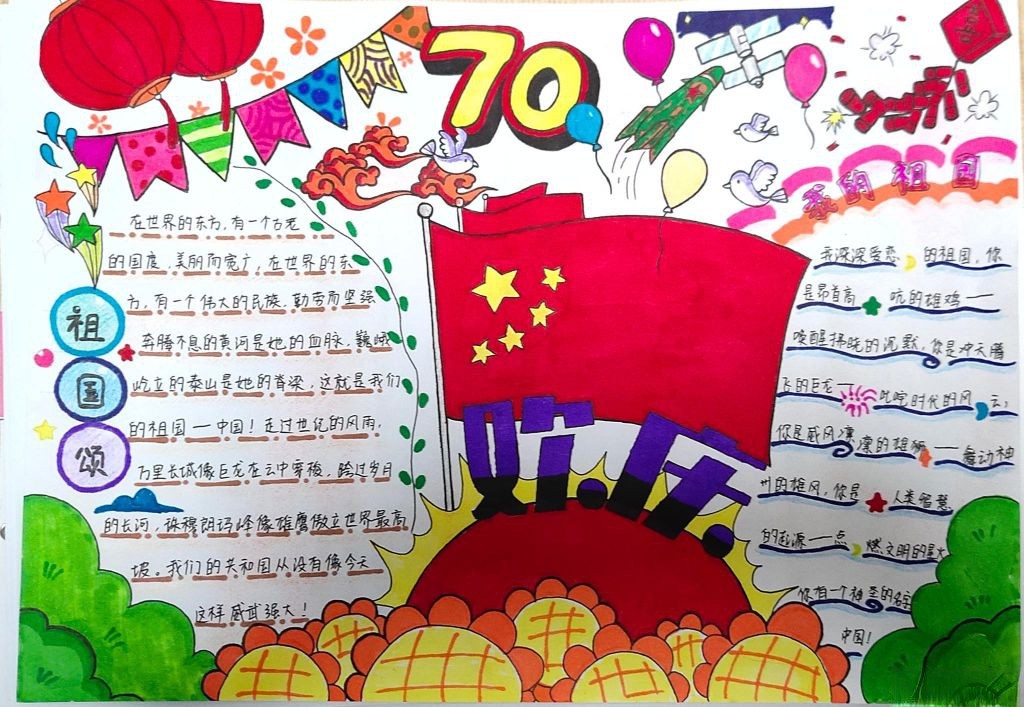 70
祖
国
颂
在世界的东方,有一个古老
的国度,美丽而宽广,在世界的东
方,有一个伟大的民族,勤劳而坚强
奔腾不息的黄河是她的血脉,巍峨
屹立的泰山是她的脊梁,这就是我们
的祖国——中国!走过世纪的风雨,
万里长城像巨龙在云中穿梭,跨过岁月
的长河,珠穆朗玛峰像雄鹰傲立世界最高
坡。我们的共和国从没有像今天
这样威武强大!
欢庆
我的祖国
我深深爱恋的祖国,你
是昂首高吭的雄鸡——
唤醒拂晓的沉默,你是冲天腾
飞的巨龙——叱咤时代的风云;
你是威风凛凛的雄狮——舞动神
州的雄风,你是人类智慧
的起源——点燃文明的星火
你有一个神圣的名字
中国!